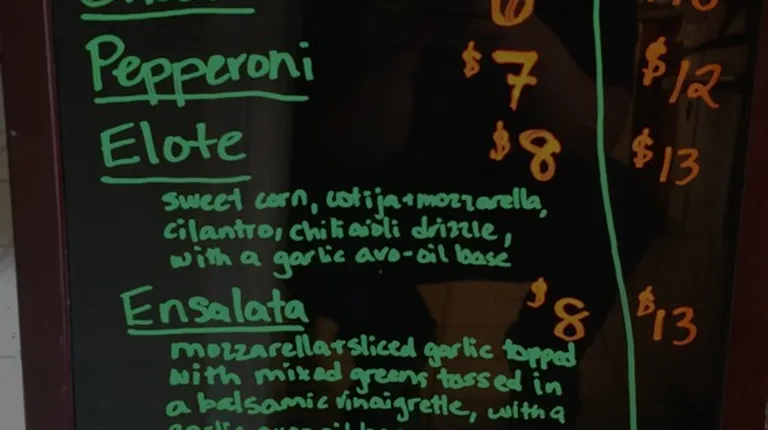 Pepperoni $7 $12
Elote $8 $13
sweet corn, cotija+mozzarella,
cilantro, chili aioli drizzle,
with a garlic avo-oil base
Ensalata $8 $13
mozzarella+sliced garlic topped
with mixed greens tossed in
a balsamic vinaigrette, with a